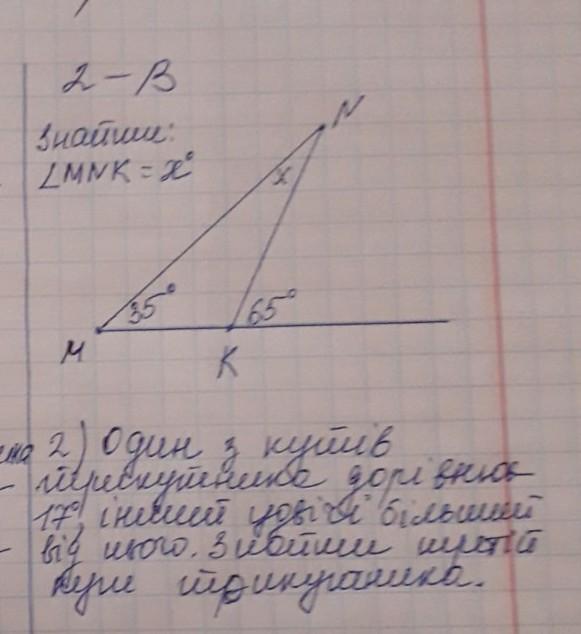 2 – В
Знайти:
∠MNK = x°
N
x
35°
65°
M
K
2) Один з кутів
трикутника дорівнює
17°, інший удвічі більший
від нього. Знайти третій
кут трикутника.